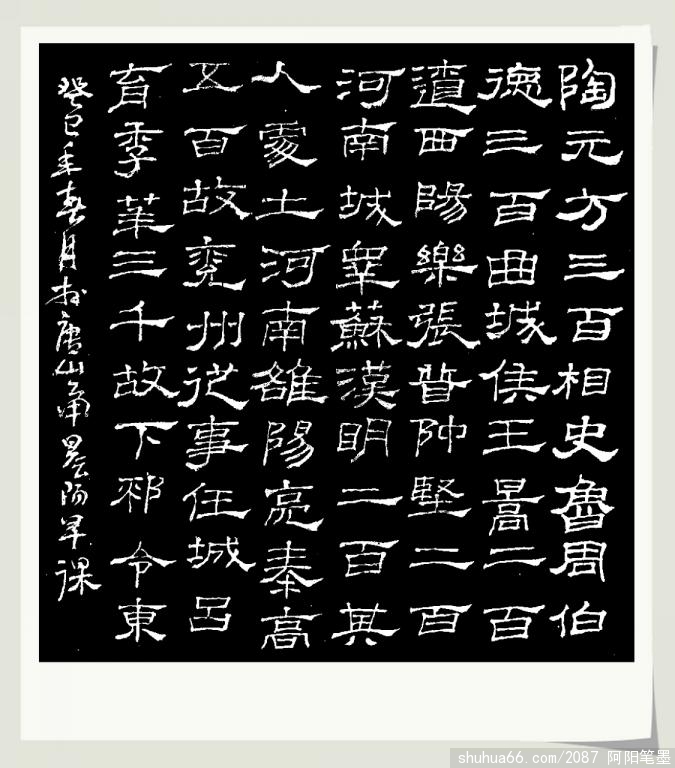 陶元方三百相史魯周伯
德三百曲城侯王暠二百
遼西陽樂張普仲堅二百
河南城睾蘇漢明二百其
人處士河南雒陽亮奉高
五百故兖州從事任城呂
育季華三千故下邳令東
癸巳年春月於唐山角晨陽早課
shuhua66.com/2087 阿阳笔墨